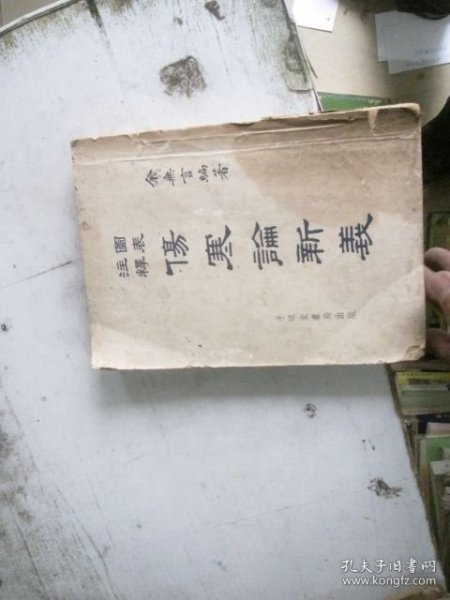 余無言編著
圖表
注釋
傷寒論新義
千頃堂書局出版
孔夫子旧书网
www.kongfz.com